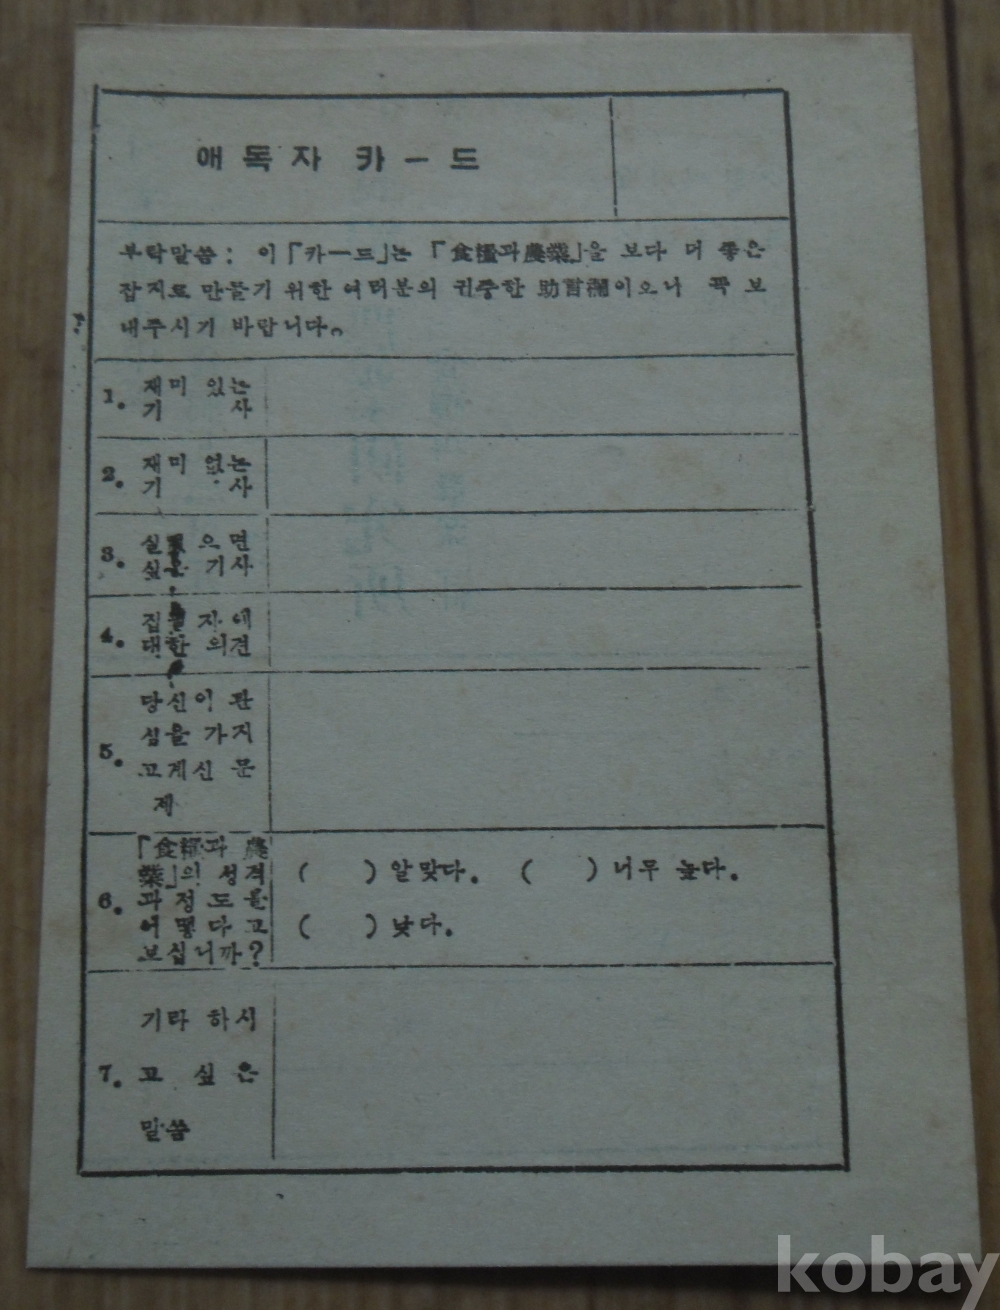 애독자 카ー드
부탁말씀: 이「카ー드」는 「食糧과農業」을 보다 더 좋은
잡지로 만들기 위한 여러분의 귀중한 助言欄이오니 꼭 보
내주시기 바랍니다。
1. 재미 있는
기 사
2. 재미 없는
기 사
3. 실 으면
싶은 기사
4. 집필자에
대한 의견
5. 당신이 관
심을 가지
고계신 문
제
6. 「食糧과 農
業」의 성격
과 정도를
어떻다고
보십니까?
( ) 알맞다. ( ) 너무 높다.
( ) 낮다.
7. 기타 하시
고 싶은
말씀
kobay